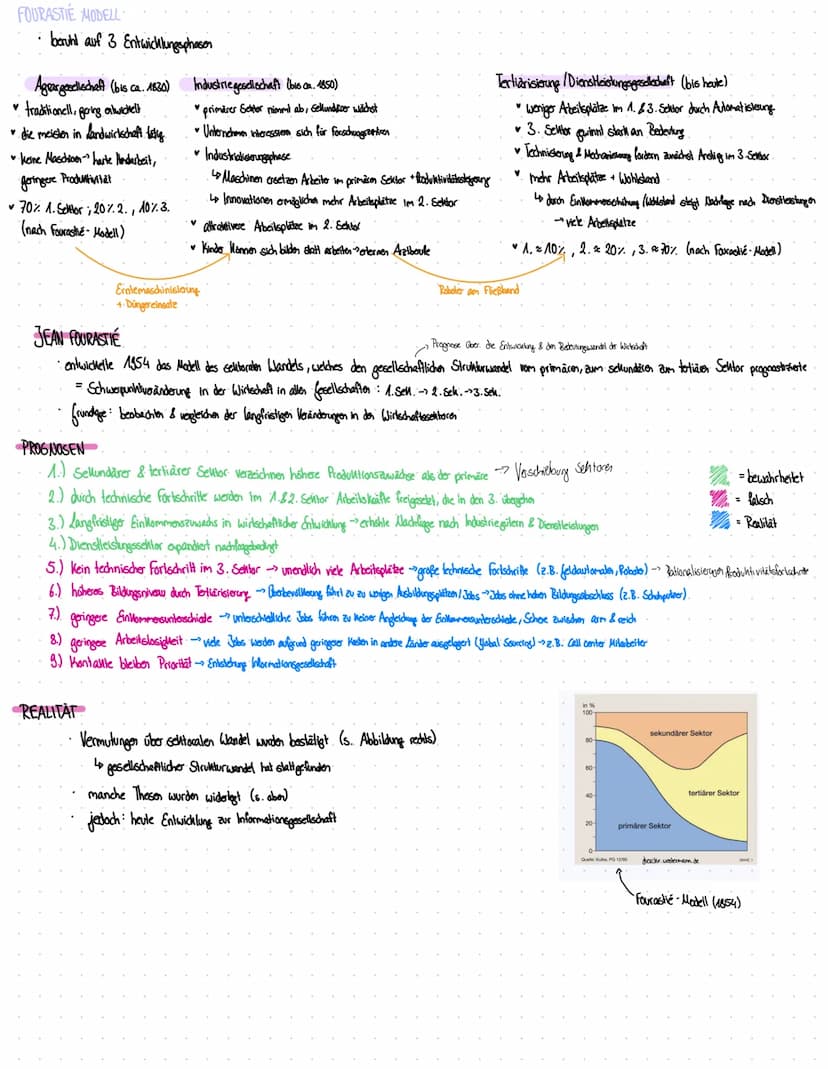 FOURASTIÉ MODELL
· beruht auf 3 Entwicklungsphasen
Agrargesellschaft (bis ca. 1820)
♥ traditionell, gering entwickelt
♥ die meisten in Landwirtschaft tätig
♥ keine Maschinen → harte Handarbeit,
geringere Produktivität
♥ 70% 1. Sektor ; 20% 2. , 10% 3.
(nach Fourastié-Modell)
Industriegesellschaft (bis ca. 1950)
♥ primärer Sektor nimmt ab, sekundärer wächst
♥ Unternehmen interessieren sich für Forschungszentren
♥ Industrialisierungsphase
↳ Maschinen ersetzen Arbeiter im primären Sektor + Produktivitätssteigerung
↳ Innovationen ermöglichen mehr Arbeitsplätze im 2. Sektor
♥ attraktivere Arbeitsplätze im 2. Sektor
♥ Kinder können sich bilden statt arbeiten →
Tertiärisierung / Dienstleistungsgesellschaft (bis heute)
♥ weniger Arbeitsplätze im 1. & 3. Sektor durch Automatisierung
♥ 3. Sektor gewinnt stark an Bedeutung
♥ Technisierung & Mechanisierung fordern zunächst Anstieg im 3. Sektor
♥ mehr Arbeitsplätze + Wohlstand
↳ durch Einkommenserhöhung / Wohlstand steigt Nachfrage nach Dienstleistungen
→ viele Arbeitsplätze
♥ 1. ≈ 10% , 2. ≈ 20% , 3. ≈ 70% (nach Fourastié-Modell)
Erntemaschinisierung
+ Düngereinsatz
Roboter am Fließband
JEAN FOURASTIÉ
→ Prognose über die Entwicklung & den Bedeutungswandel der Wirtschaft
· entwickelte 1954 das Modell des sektoralen Wandels, welches den gesellschaftlichen Strukturwandel vom primären, zum sekundären zum tertiären Sektor prognostizierte
= Schwerpunktveränderung in der Wirtschaft in allen Gesellschaften : 1. Sek. → 2. Sek. → 3. Sek.
· Grundlage: beobachten & vergleichen der langfristigen Veränderungen in den Wirtschaftssektoren
PROGNOSEN
1.) Sekundärer & tertiärer Sektor verzeichnen höhere Produktionszuwächse als der primäre → Verschiebung Sektoren
2.) durch technische Fortschritte werden im 1. & 2. Sektor Arbeitskräfte freigesetzt, die in den 3. übergehen
3.) Langfristiger Einkommenszuwachs in wirtschaftlicher Entwicklung → erhöhte Nachfrage nach Industriegütern & Dienstleistungen
4.) Dienstleistungssektor expandiert nachfragebedingt
5.) Kein technischer Fortschritt im 3. Sektor → unendlich viele Arbeitsplätze → große technische Fortschritte (z.B. Geldautomaten, Roboter) → Rationalisierung/Produktivitätsfortschritte
6.) höheres Bildungsniveau durch Tertiärisierung → Überbevölkerung führt zu zu wenigen Ausbildungsplätzen / Jobs → Jobs ohne hohen Bildungsabschluss (z.B. Schuhputzer)
7.) geringere Einkommensunterschiede → unterschiedliche Jobs führen zu keiner Angleichung der Einkommensunterschiede, Schere zwischen arm & reich
8.) geringere Arbeitslosigkeit → viele Jobs werden aufgrund geringerer Kosten in andere Länder ausgelagert (Global Sourcing) → z.B. Call center Mitarbeiter
9.) Kontakte bleiben Priorität → Entstehung Informationsgesellschaft
= bewahrheitet
= falsch
= Realität
REALITÄT
· Vermutungen über sektoralen Wandel wurden bestätigt (s. Abbildung rechts)
↳ gesellschaftlicher Strukturwandel hat stattgefunden
· manche Thesen wurden widerlegt (s. oben)
· jedoch: heute Entwicklung zur Informationsgesellschaft
in %
100
80
60
40
20
0
sekundärer Sektor
tertiärer Sektor
primärer Sektor
Fourastié-Modell (1954)